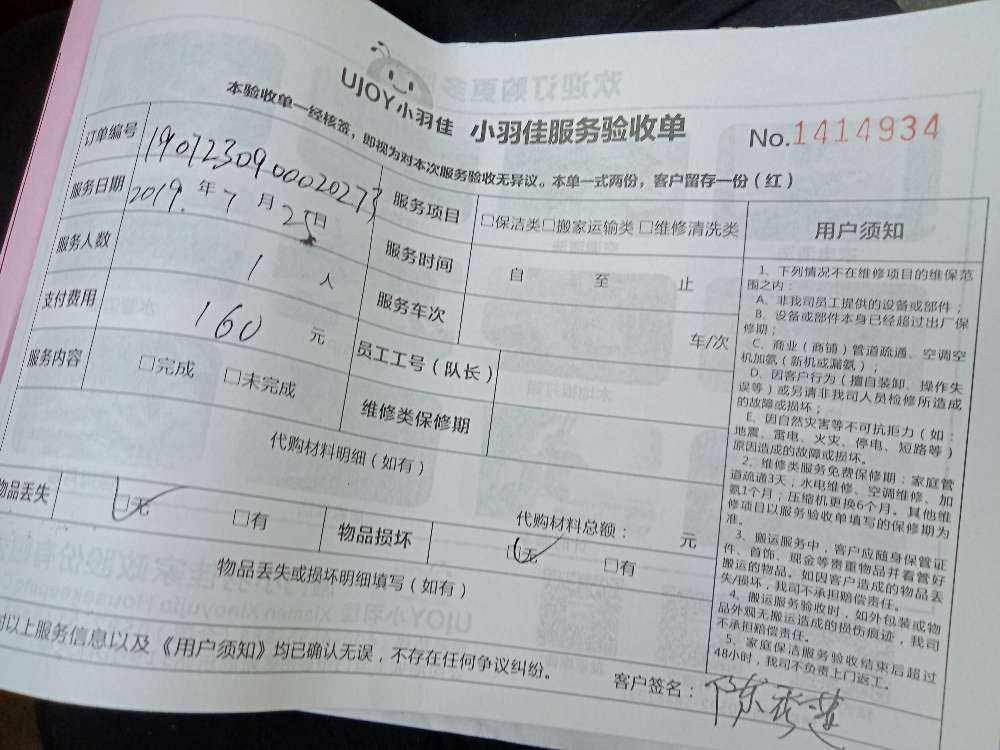 UJOY小羽佳 小羽佳服务验收单 No.1414934
本验收单一经核签，即视为对本次服务验收无异议。本单一式两份，客户留存一份（红）
订单编号 1907230900020273 服务项目 □保洁类□搬家运输类 □维修清洗类
服务日期 2019.年7月25日 服务时间 自 至 止
服务人数 1 人 服务车次 车/次
支付费用 160 元 员工工号（队长）
服务内容 □完成 □未完成 维修类保修期
代购材料明细（如有）
代购材料总额： 元
物品丢失 □无 □有 物品损坏 □无 □有
物品丢失或损坏明细填写（如有）
对以上服务信息以及《用户须知》均已确认无误，不存在任何争议纠纷。
客户签名：
用户须知
1、下列情况不在维修项目的维保范
围之内：
A、非我司员工提供的设备或部件；
B、设备或部件本身已经超过出厂保
修期；
C、商业（商铺）管道疏通、空调空
机加氨（新机或漏氨）；
D、因客户行为（擅自装卸、操作失
误等）或另请非我司人员检修所造成
的故障或损坏；
E、因自然灾害等不可抗拒力（如：
地震、雷电、火灾、停电、短路等）
原因造成的故障或损坏。
2、维修类服务免费保修期：家庭管
道疏通3天；水电维修、空调维修、加
氨1个月；压缩机更换6个月。其他维
修项目以服务验收单填写的保修期为
准。
3、搬运服务中，客户应随身保管证
件、首饰、现金等贵重物品并看管好
搬运的物品。如因客户造成的物品丢
失/损坏，我司不承担赔偿责任。
4、搬运服务验收时，如外包装或物
品外观无搬运造成的损伤痕迹，我司
不承担赔偿责任。
5、家庭保洁服务验收结束后超过
48小时，我司不负责上门返工。